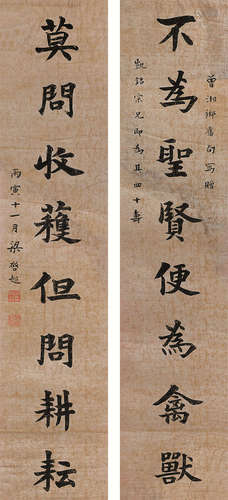 不為聖賢便為禽獸
曾湘鄉舊句寫贈
凱銘宗兄即為其四十壽
莫問收穫但問耕耘
丙寅十一月梁啓超